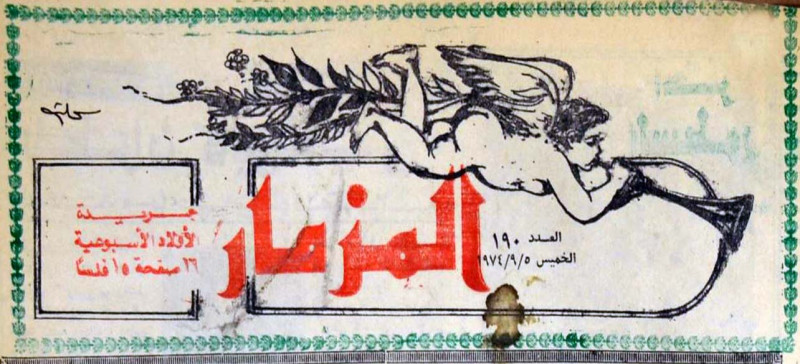 المزمار
العدد ١٩٠
الخميس ١٩٧٤/٩/٥
جريدة
الأولاد الأسبوعية
١٦ صفحة ١٥ فلسا